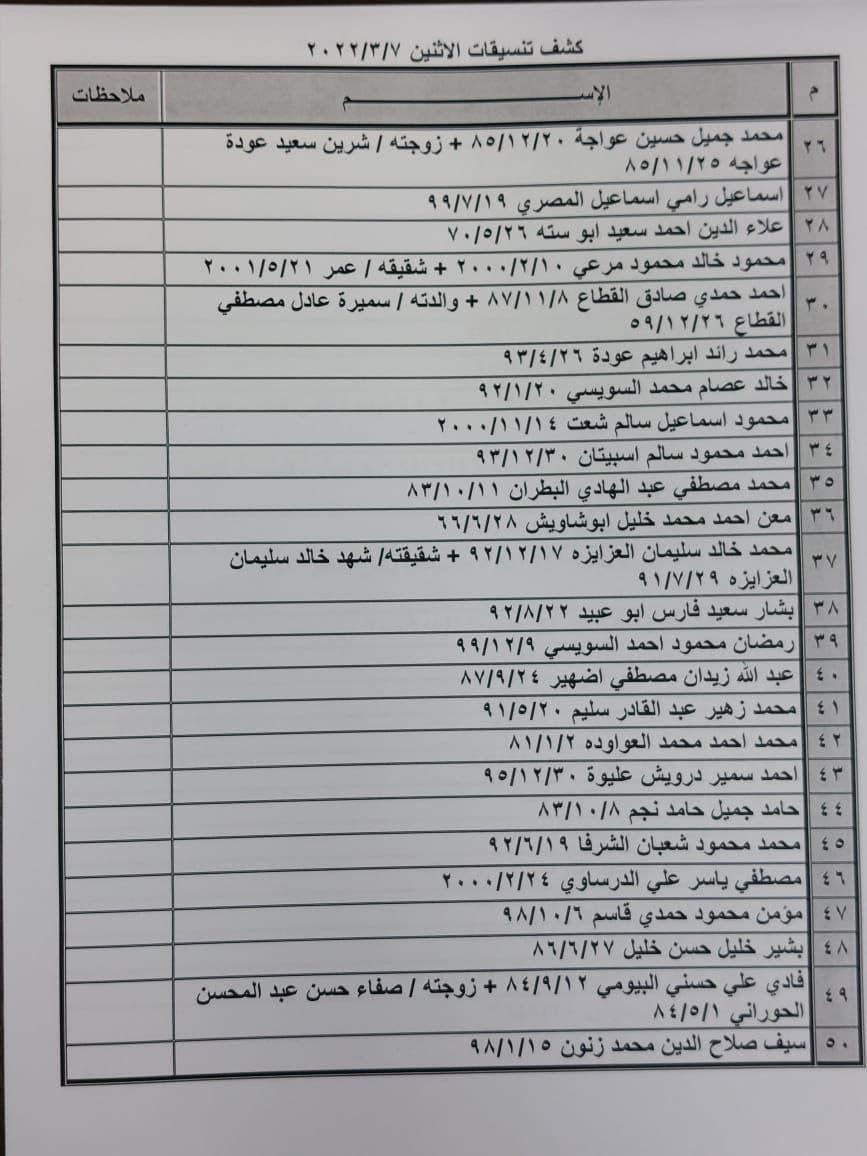 كشف تنسيقات الاثنين ٢٠٢٢/٣/٧
م الإســـــم ملاحظات
٢٦ محمد جميل حسين عواجة ٨٥/١٢/٢٠ + زوجته / شرين سعيد عودة
عواجه ٨٥/١١/٢٥
٢٧ اسماعيل رامي اسماعيل المصري ٩٩/٧/١٩
٢٨ علاء الدين احمد سعيد ابو سته ٧٠/٥/٢٦
٢٩ محمود خالد محمود مرعي ٢٠٠٠/٢/١٠ + شقيقه / عمر ٢٠٠١/٥/٢١
٣٠ احمد حمدي صادق القطاع ٨٧/١١/٨ + والدته / سميرة عادل مصطفي
القطاع ٥٩/١٢/٢٦
٣١ محمد رائد ابراهيم عودة ٩٣/٤/٢٦
٣٢ خالد عصام محمد السويسي ٩٢/١/٢٠
٣٣ محمود اسماعيل سالم شعت ٢٠٠٠/١١/١٤
٣٤ احمد محمود سالم اسبيتان ٩٣/١٢/٣٠
٣٥ محمد مصطفي عبد الهادي البطران ٨٣/١٠/١١
٣٦ معن احمد محمد خليل ابوشاويش ٦٦/٦/٢٨
٣٧ محمد خالد سليمان العزايزه ٩٢/١٢/١٧ + شقيقته/ شهد خالد سليمان
العزايزه ٩١/٧/٢٩
٣٨ بشار سعيد فارس ابو عبيد ٩٢/٨/٢٢
٣٩ رمضان محمود احمد السويسي ٩٩/١٢/٩
٤٠ عبد الله زيدان مصطفي اضهير ٨٧/٩/٢٤
٤١ محمد زهير عبد القادر سليم ٩١/٥/٢٠
٤٢ محمد احمد محمد العواوده ٨١/١/٢
٤٣ احمد سمير درويش عليوة ٩٥/١٢/٣٠
٤٤ حامد جميل حامد نجم ٨٣/١٠/٨
٤٥ محمد محمود شعبان الشرفا ٩٢/٦/١٩
٤٦ مصطفي ياسر علي الدرساوي ٢٠٠٠/٢/٢٤
٤٧ مؤمن محمود حمدي قاسم ٩٨/١٠/٦
٤٨ بشير خليل حسن خليل ٨٦/٦/٢٧
٤٩ فادي علي حسني البيومي ٨٤/٩/١٢ + زوجته / صفاء حسن عبد المحسن
الحوراني ٨٤/٥/١
٥٠ سيف صلاح الدين محمد زنون ٩٨/١/١٥